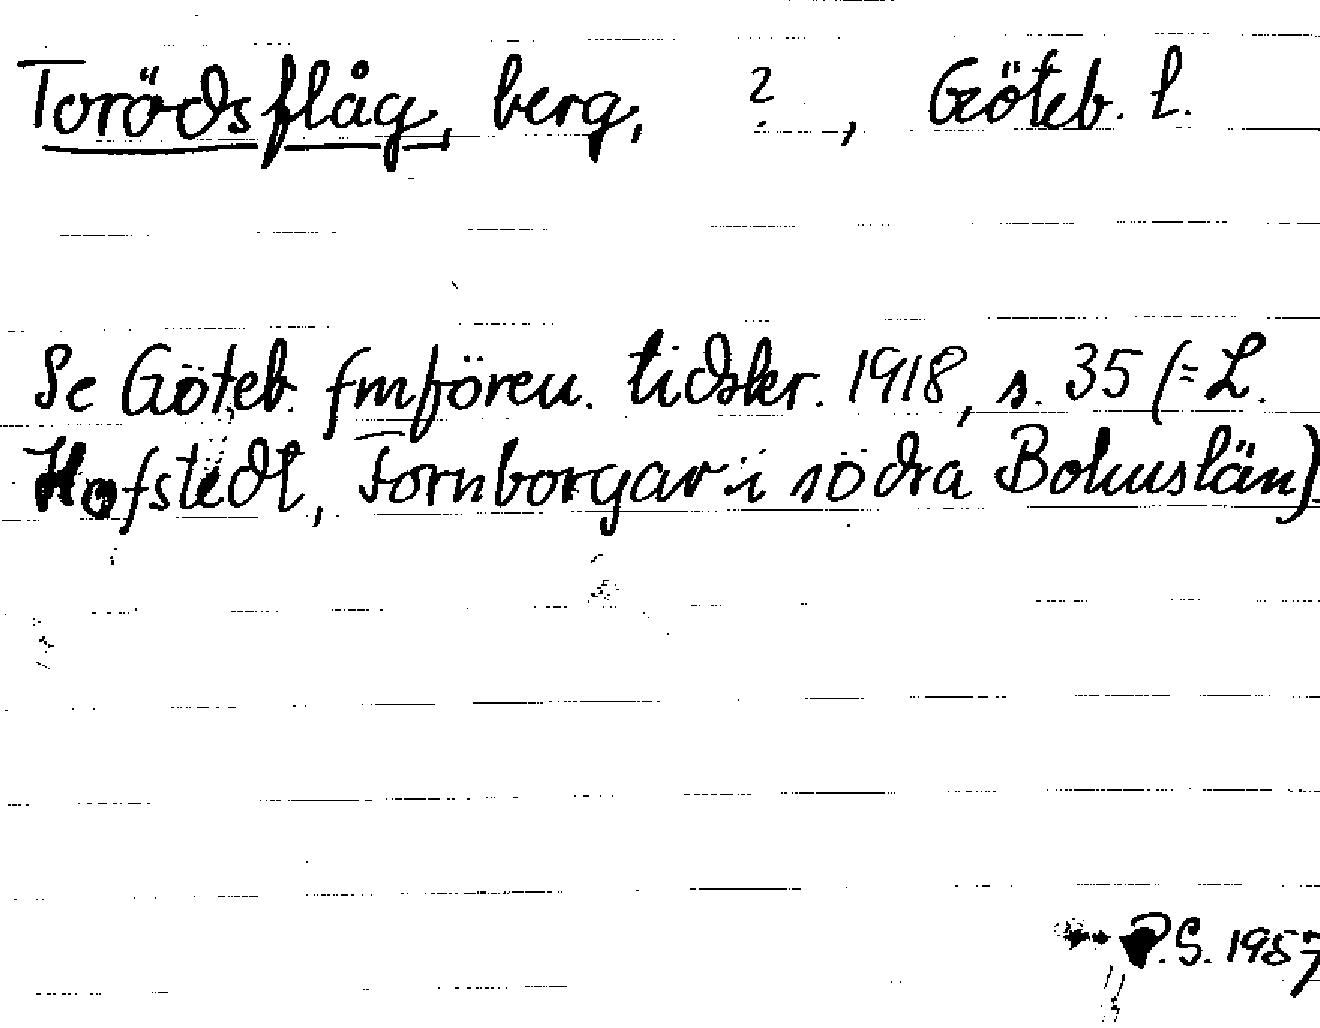 Torödsflåg, berg, ?, Göteb. l.
Se Göteb. fmfören. tidskr. 1918, s. 35 (= L.
Hofstedt, Fornborgar i södra Bohuslän).
P.S. 1957